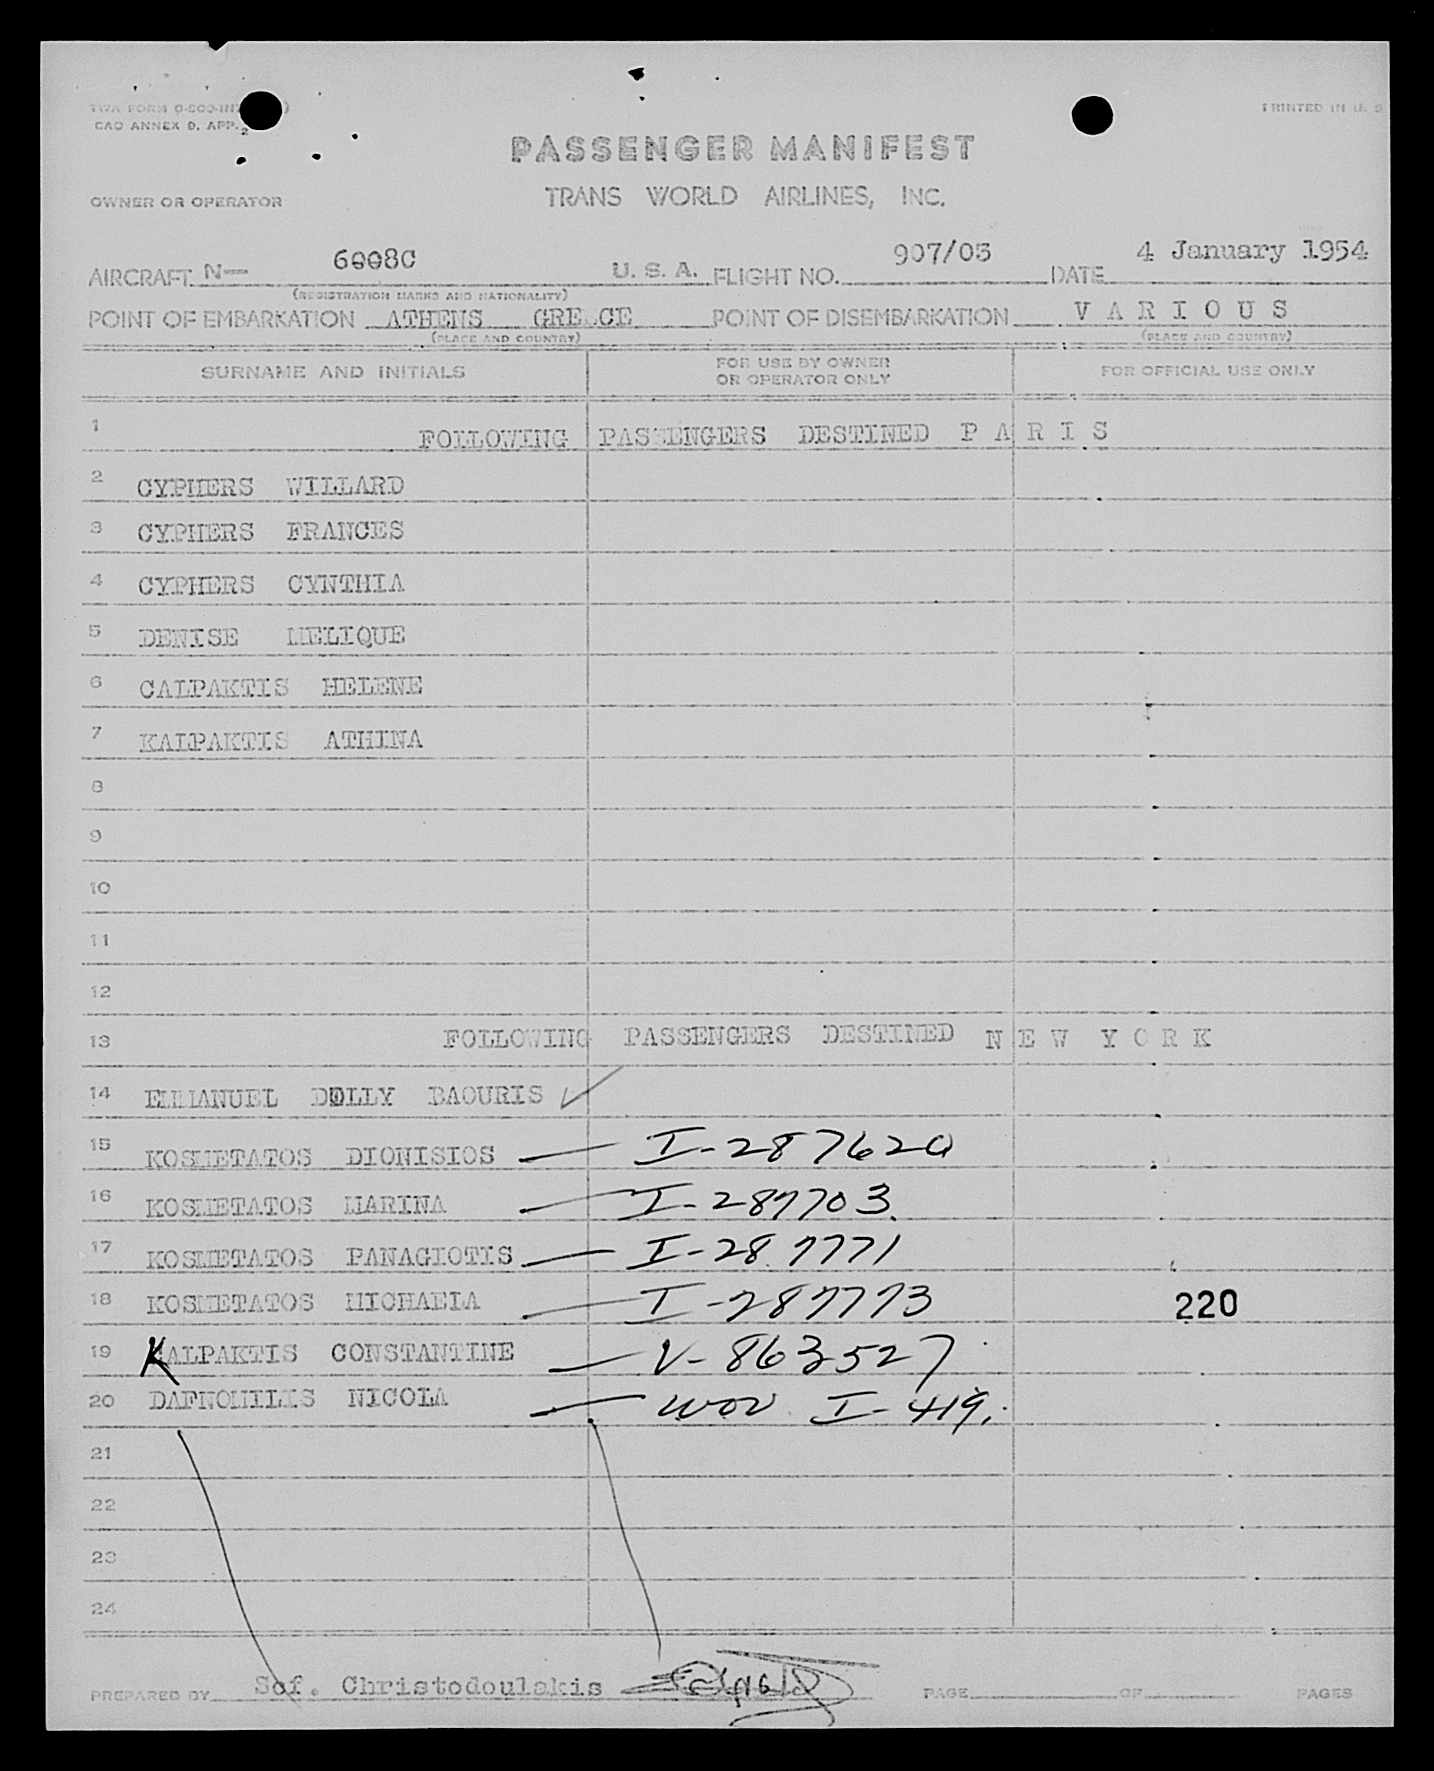 TWA FORM O-500-INT
CAO ANNEX D, APP. 2
PRINTED IN U. S
PASSENGER MANIFEST
OWNER OR OPERATOR
TRANS WORLD AIRLINES, INC.
AIRCRAFT N-- 6008C U. S. A. FLIGHT NO. 907/03 DATE 4 January 1954
(REGISTRATION MARKS AND NATIONALITY)
POINT OF EMBARKATION ATHENS GREECE POINT OF DISEMBARKATION V A R I O U S
(PLACE AND COUNTRY) (PLACE AND COUNTRY)
SURNAME AND INITIALS FOR USE BY OWNER OR OPERATOR ONLY FOR OFFICIAL USE ONLY
1 FOLLOWING PASSENGERS DESTINED P A R I S
2 CYPHERS WILLARD
3 CYPHERS FRANCES
4 CYPHERS CYNTHIA
5 DENISE MELIQUE
6 CALPAKTIS HELENE
7 KALPAKTIS ATHINA
8
9
10
11
12
13 FOLLOWING PASSENGERS DESTINED N E W Y O R K
14 EMMANUEL DOLLY BAOURIS ✓
15 KOSMETATOS DIONISIOS — I-287620
16 KOSMETATOS MARINA — I-287703
17 KOSMETATOS PANAGIOTIS — I-287771
18 KOSMETATOS MICHAELA — I-287773 220
19 KALPAKTIS CONSTANTINE — V-863527
20 DAFNOMILIS NICOLA — WOV I-419.
21
22
23
24
PREPARED BY Sof. Christodoulakis PAGE OF PAGES